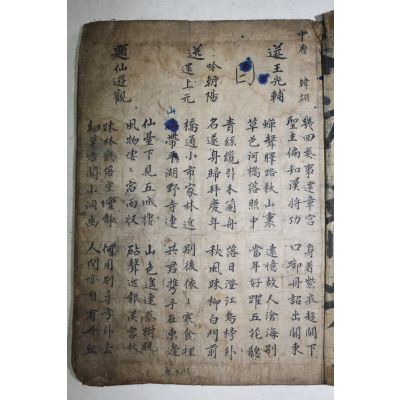 中唐 韓翃
送王光輔
幾回奏事建章宮 身着紫衣趍闕下
聖主偏知漢將功 口啣丹詔出關東
蟬聲驛路秋山裏 遠憶故人滄海別
草色河橋落照中 當年好躍五花驄
送吟朝陽還上元
青絲纜引木蘭舟 落日澄江烏榜外
名遂身歸拜慶年 秋風踈柳白門前
橋通小市家林近 別後依〻寒食裡
山帶平湖野寺連 共君携手在東邊
題仙遊觀
仙臺下見五城樓 山色遙連秦樹晚
風物凄〻宿雨收 砧聲近報漢宮秋
踈林影落空壇靜 何用別尋方外去
細草香蘭小洞幽 人間亦自有丹丘